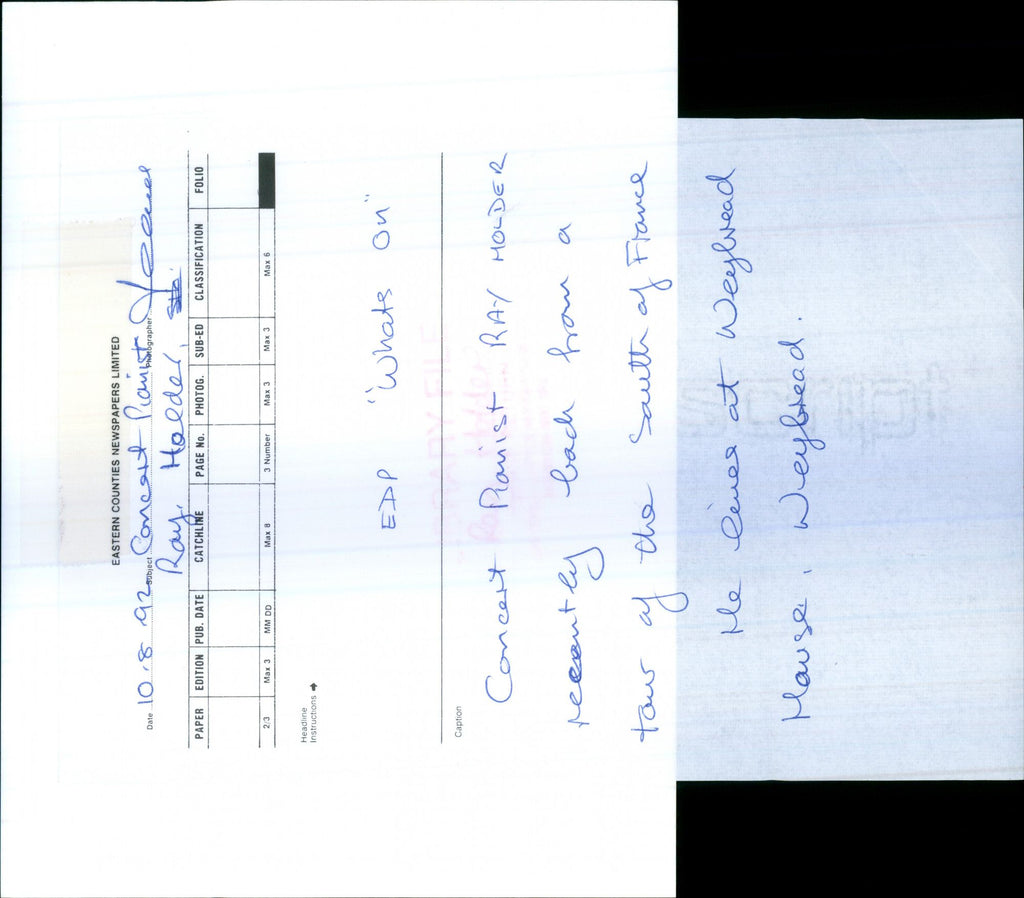 EASTERN COUNTIES NEWSPAPERS LIMITED
Date 10.8.92 Subject Concert Pianist Photographer
Ray Holder.
PAPER EDITION PUB. DATE CATCHLINE PAGE No. PHOTOG. SUB-ED CLASSIFICATION FOLIO
2/3 Max 3 MM DD Max 8 3 Number Max 3 Max 3 Max 6
Headline
Instructions ➔
EDP "Whats On"
Caption
Concert Pianist RAY HOLDER
recently back from a
tour of the South of France
He lives at Weybread
House, Weybread.